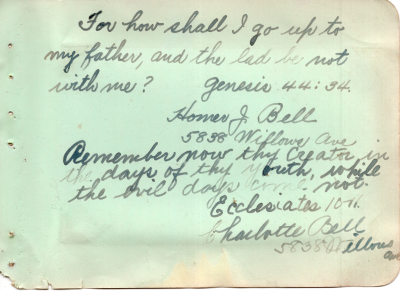 For how shall I go up to
my father, and the lad be not
with me? Genesis 44:34.
Homer J. Bell
5838 Willows Ave
Remember now thy Creator in
the days of thy youth, while
the evil days come not.
Ecclesiates
Charlotte Bell
5838 Willows
Ave